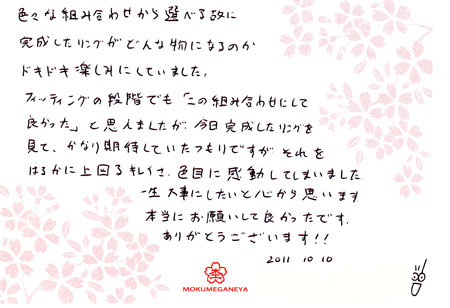 色々な組み合わせから選べる故に
完成したリングがどんな物になるのか
ドキドキ楽しみにしていました。
フィッティングの段階でも「この組み合わせにして
良かった」と思えましたが、今日完成したリングを
見て、かなり期待していたつもりですが それを
はるかに上回るキレイさ、色目に感動してしまいました
一生大事にしたいと心から思います
本当にお願いして良かったです。
ありがとうございます!!
2011 10 10
MOKUMEGANEYA